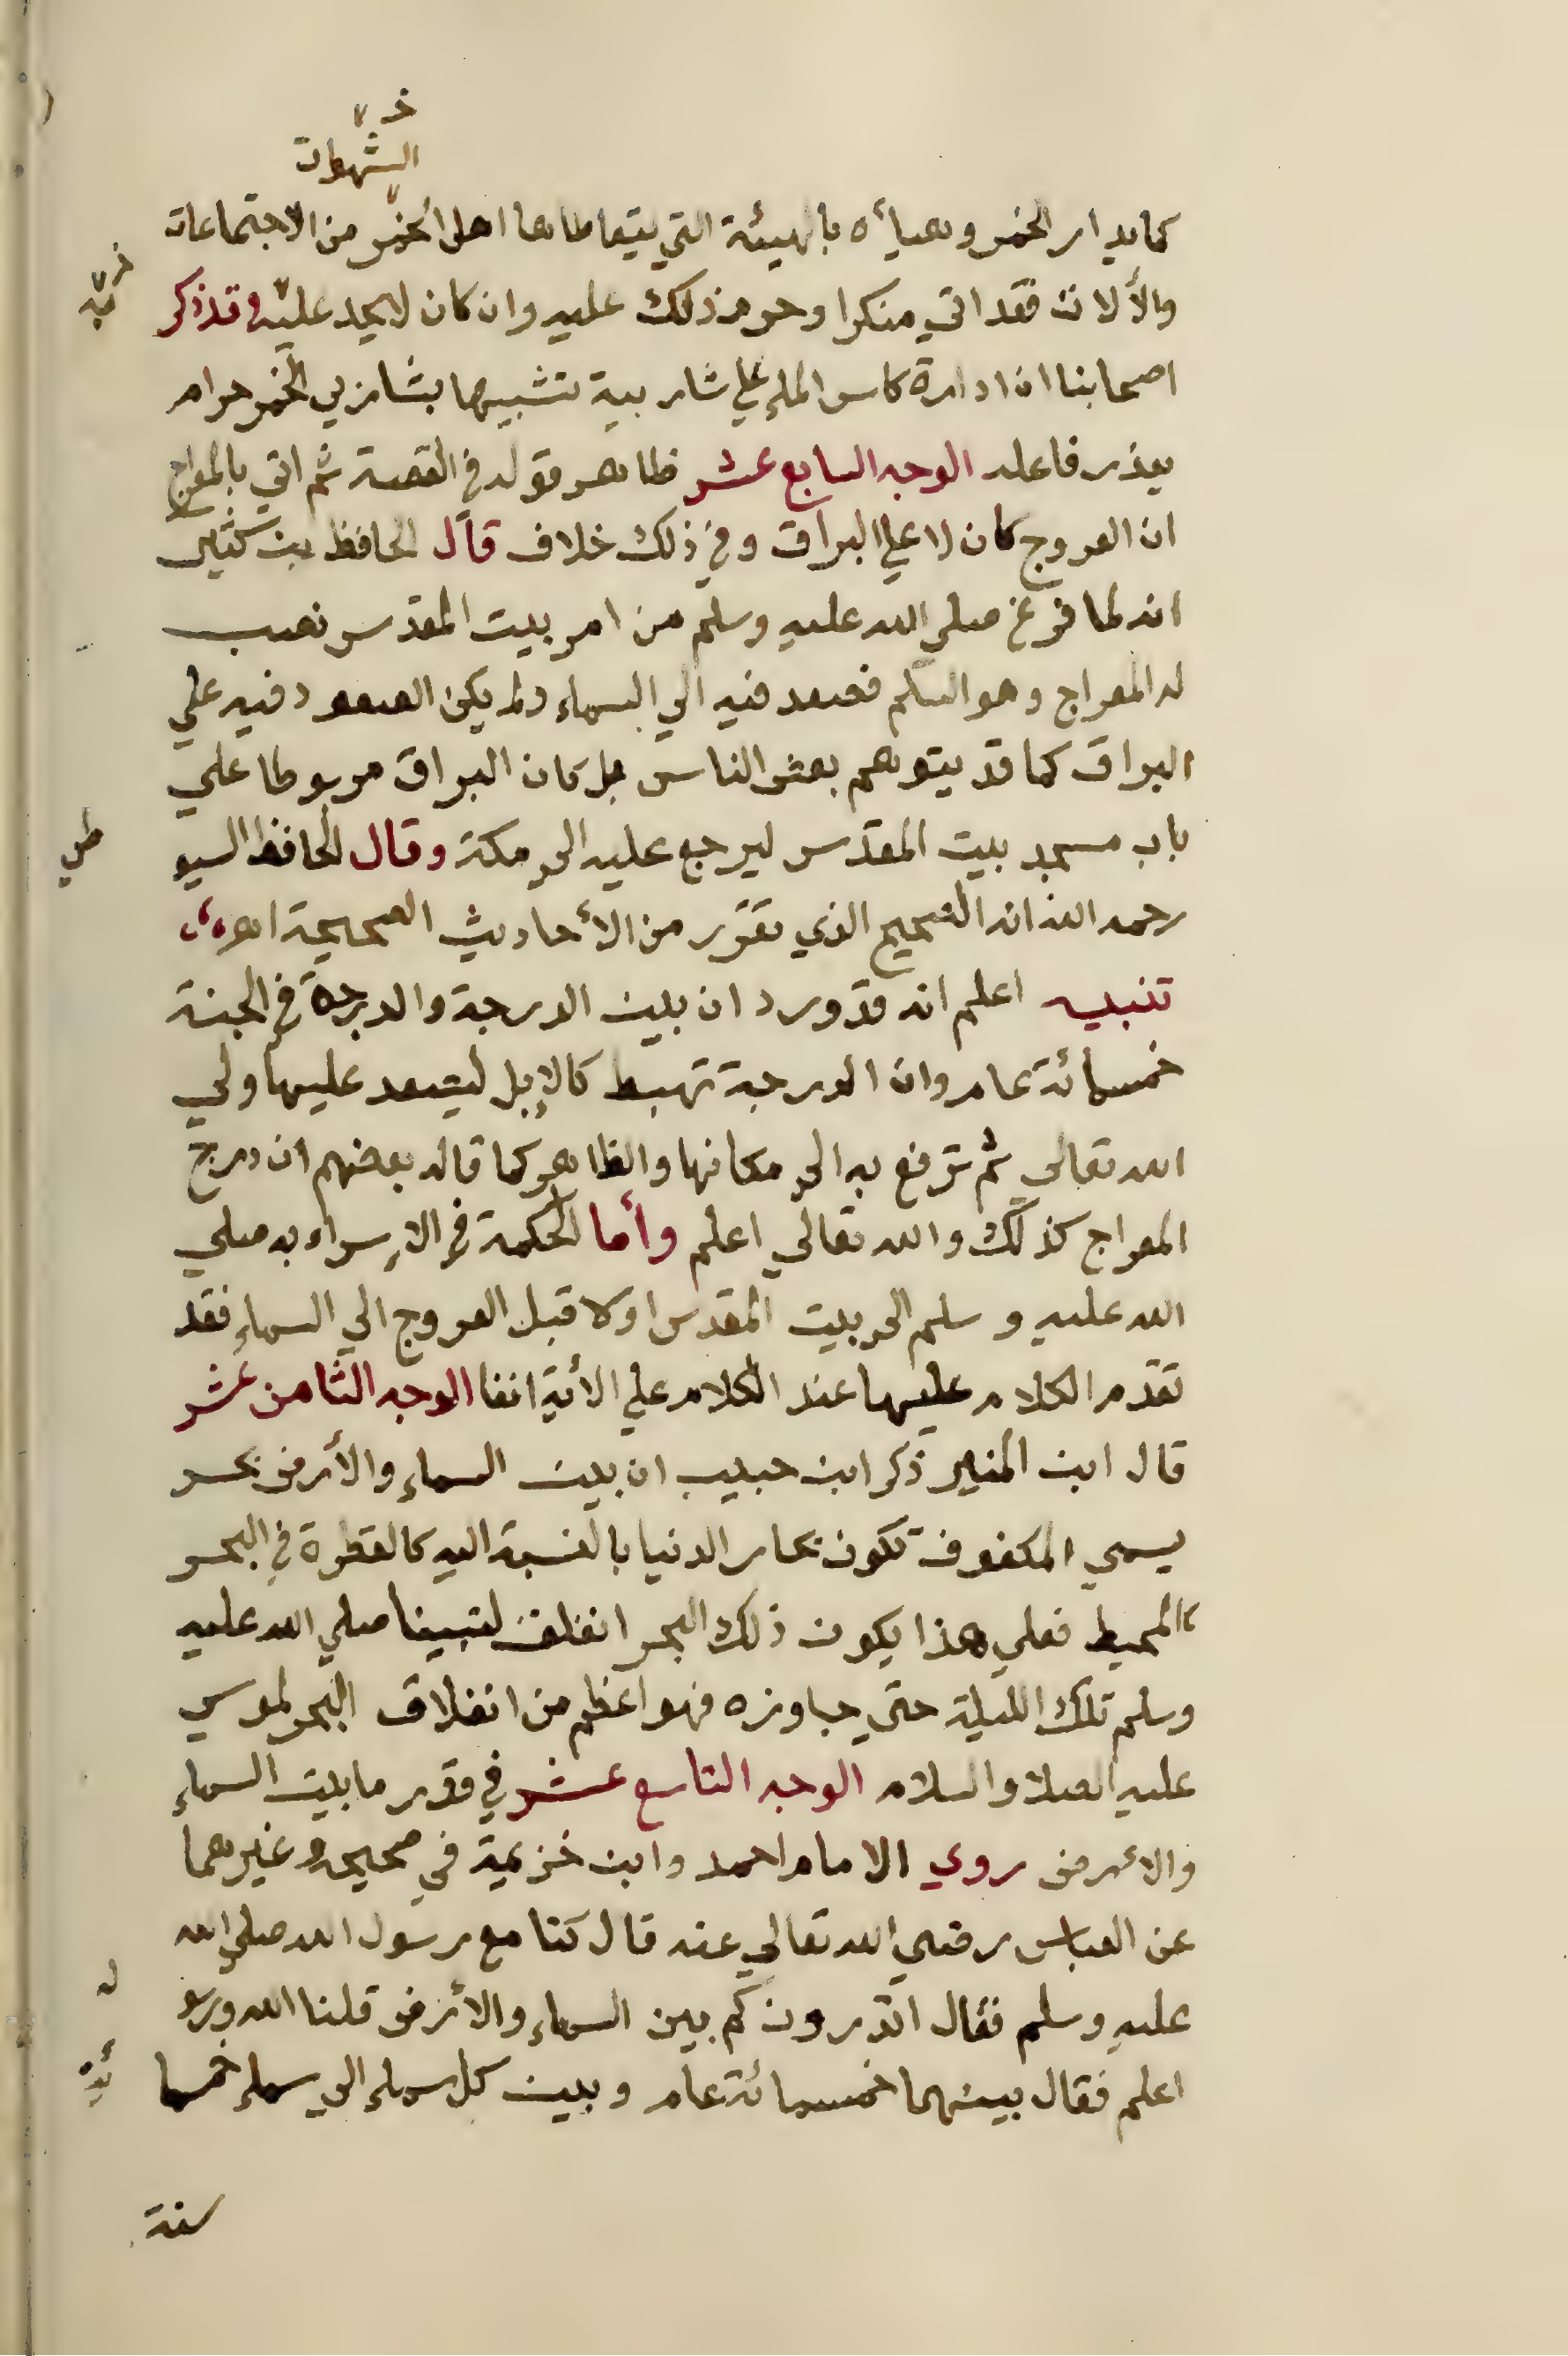 خـ
الشهوات
كما يدار الخمر وهيأه بالهيئة التي يتعاطاها اهل الخمر من الاجتماعات
والألات فقد اتي منكرا وحرم ذلك عليه وان كان لا يحد عليه وقد ذكر
اصحابنا ان ادارة كاس الماء علي شاربيه تشبيها بشاربي الخمر حرام
يعذر فاعله الوجه السابع عشر ظاهر قوله في القصة ثم اتي بالمعراج
ان العروج كان لا علي البراق وفي ذلك خلاف قال الحافظ بن كثير
انه لما فرغ صلي الله عليه وسلم من امر بيت المقدس نصب
له المعراج وهو السلم فصعد فيه الي السماء ولم يكن الصعود فيه علي
البراق كما قد يتوهم بعض الناس بل كان البراق مربوطا علي
باب مسجد بيت المقدس ليرجع عليه الي مكة وقال الحافظ السيو
طي
رحمه الله انه الصحيح الذي تقرر من الأحاديث الصحيحة اهـ
تنبيه اعلم انه قد ورد ان بين الدرجة والدرجة في الجنة
خمسمائة عام وان الدرجة تهبط كالإبل ليصعد عليها ولي
الله تعالي ثم ترفع به الي مكانها والظاهر كما قاله بعضهم ان درج
المعراج كذلك والله تعالي اعلم وأما الحكمة في الإسراء به صلي
الله عليه وسلم الي بيت المقدس اولا قبل العروج الي السماء فقد
تقدم الكلام عليها عند الكلام علي الأية انفا الوجه الثامن عشر
قال ابن المنير ذكر ابن حبيب ان بين السماء والأرض بحر
يسمي المكفوف تكون بحار الدنيا بالنسبة اليه كالقطرة في البحر
المحيط فعلي هذا يكون ذلك البحر انفلق لنبينا صلي الله عليه
وسلم تلك الليلة حتي جاوزه فهو اعظم من انفلاق البحر لموسي
عليه الصلا والسلام الوجه التاسع عشر في قدر ما بين السماء
والأرض روي الامام احمد وابن خزيمة في صحيحه وغيرهما
عن العباس رضي الله تعالي عنه قال كنا مع رسول الله صلي الله
عليه وسلم فقال اتدرون كم بين السماء والأرض قلنا الله ورسو
له
اعلم فقال بينهما خمسمائة عام وبين كل سماء الي سماء خمسما
ئة
سنة